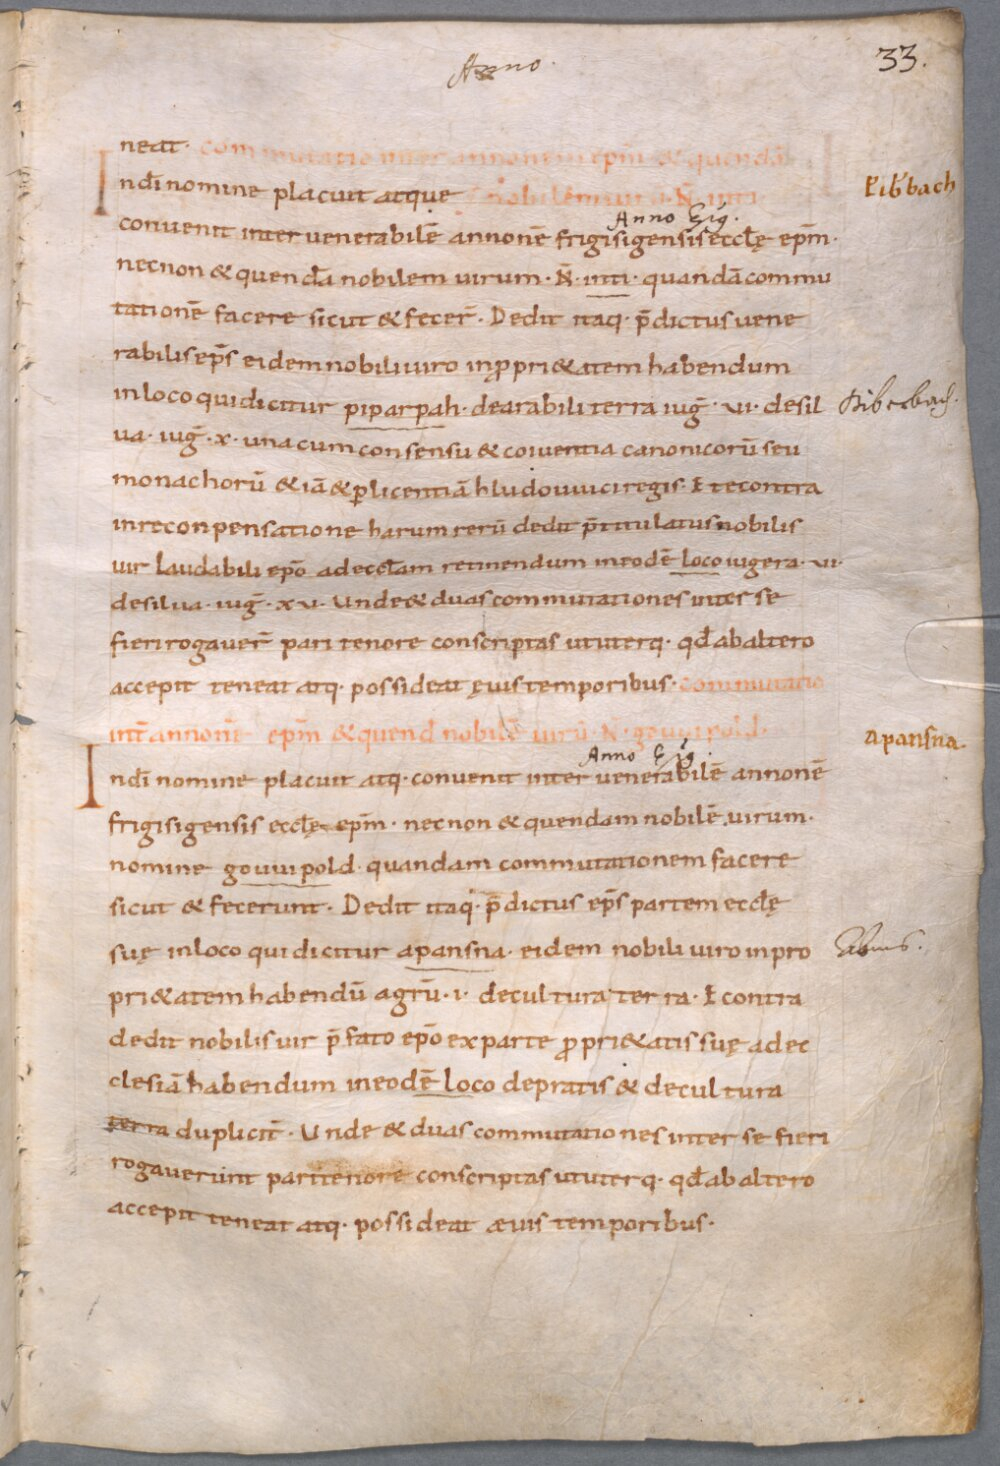 Anno.
33.
neat· commutatio inter annonem epm̄ & quendā
Indī nomine placuit atque nobilem uirum· N̄· inti
P̄ib̄bach
Anno Ep̄s.
conuenit inter uenerabilē annonē frigisigensis eccłę epm̄·
necnon & quendā nobilem uirum· N̄· inti· quandā commu
tationē facere sicut & fecer̄· Dedit itaq· p̄dictus uene
rabilis ep̄s eidem nobili uiro in ꝓpri&atem habendum
in loco qui dicitur piparpah· de arabili terra iuḡ· vi· de sil
Biberbach.
ua· iuḡ· x· una cum consensu & coiuentia canonicorū seu
monachorū & iā & ꝑ licentiā hludouuici regis· Et econtra
in reconpensatione harum rerū dedit p̄titulatus nobilis
uir laudabili epō ad eccłam retinendum in eodē loco iugera· vi·
de silua· iuḡ· xv· Unde & duas commutationes inter se
fieri rogauer̄ pari tenore conscriptas ut uterq· qđ ab altero
accepit teneat atq· possideat ęuis temporibus· commutatio
int̄ annonē epm̄ & quend nobilē uirū· N̄· gouuipold·
apansna·
Anno Ep̄s.
Indī nomine placuit atq· conuenit inter uenerabilē annonē
frigisigensis eccłę epm̄· necnon & quendam nobilē uirum·
nomine gouuipold· quandam commutationem facere
sicut & fecerunt· Dedit itaq· p̄dictus ep̄s partem eccłę
suę in loco qui dicitur apansna· eidem nobili uiro in pro
pri&atem habendū agrū· i· de cultura terra· Econtra
dedit nobilis uir p̄fato epō ex parte ꝓpri&atis suę ad ec
clesiā habendum in eodē loco de pratis & de cultura
terra duplicit̄· Unde & duas commutationes inter se fieri
rogauerunt pari tenore conscriptas ut uterq· qđ ab altero
accepit teneat atq· possideat æuis temporibus·